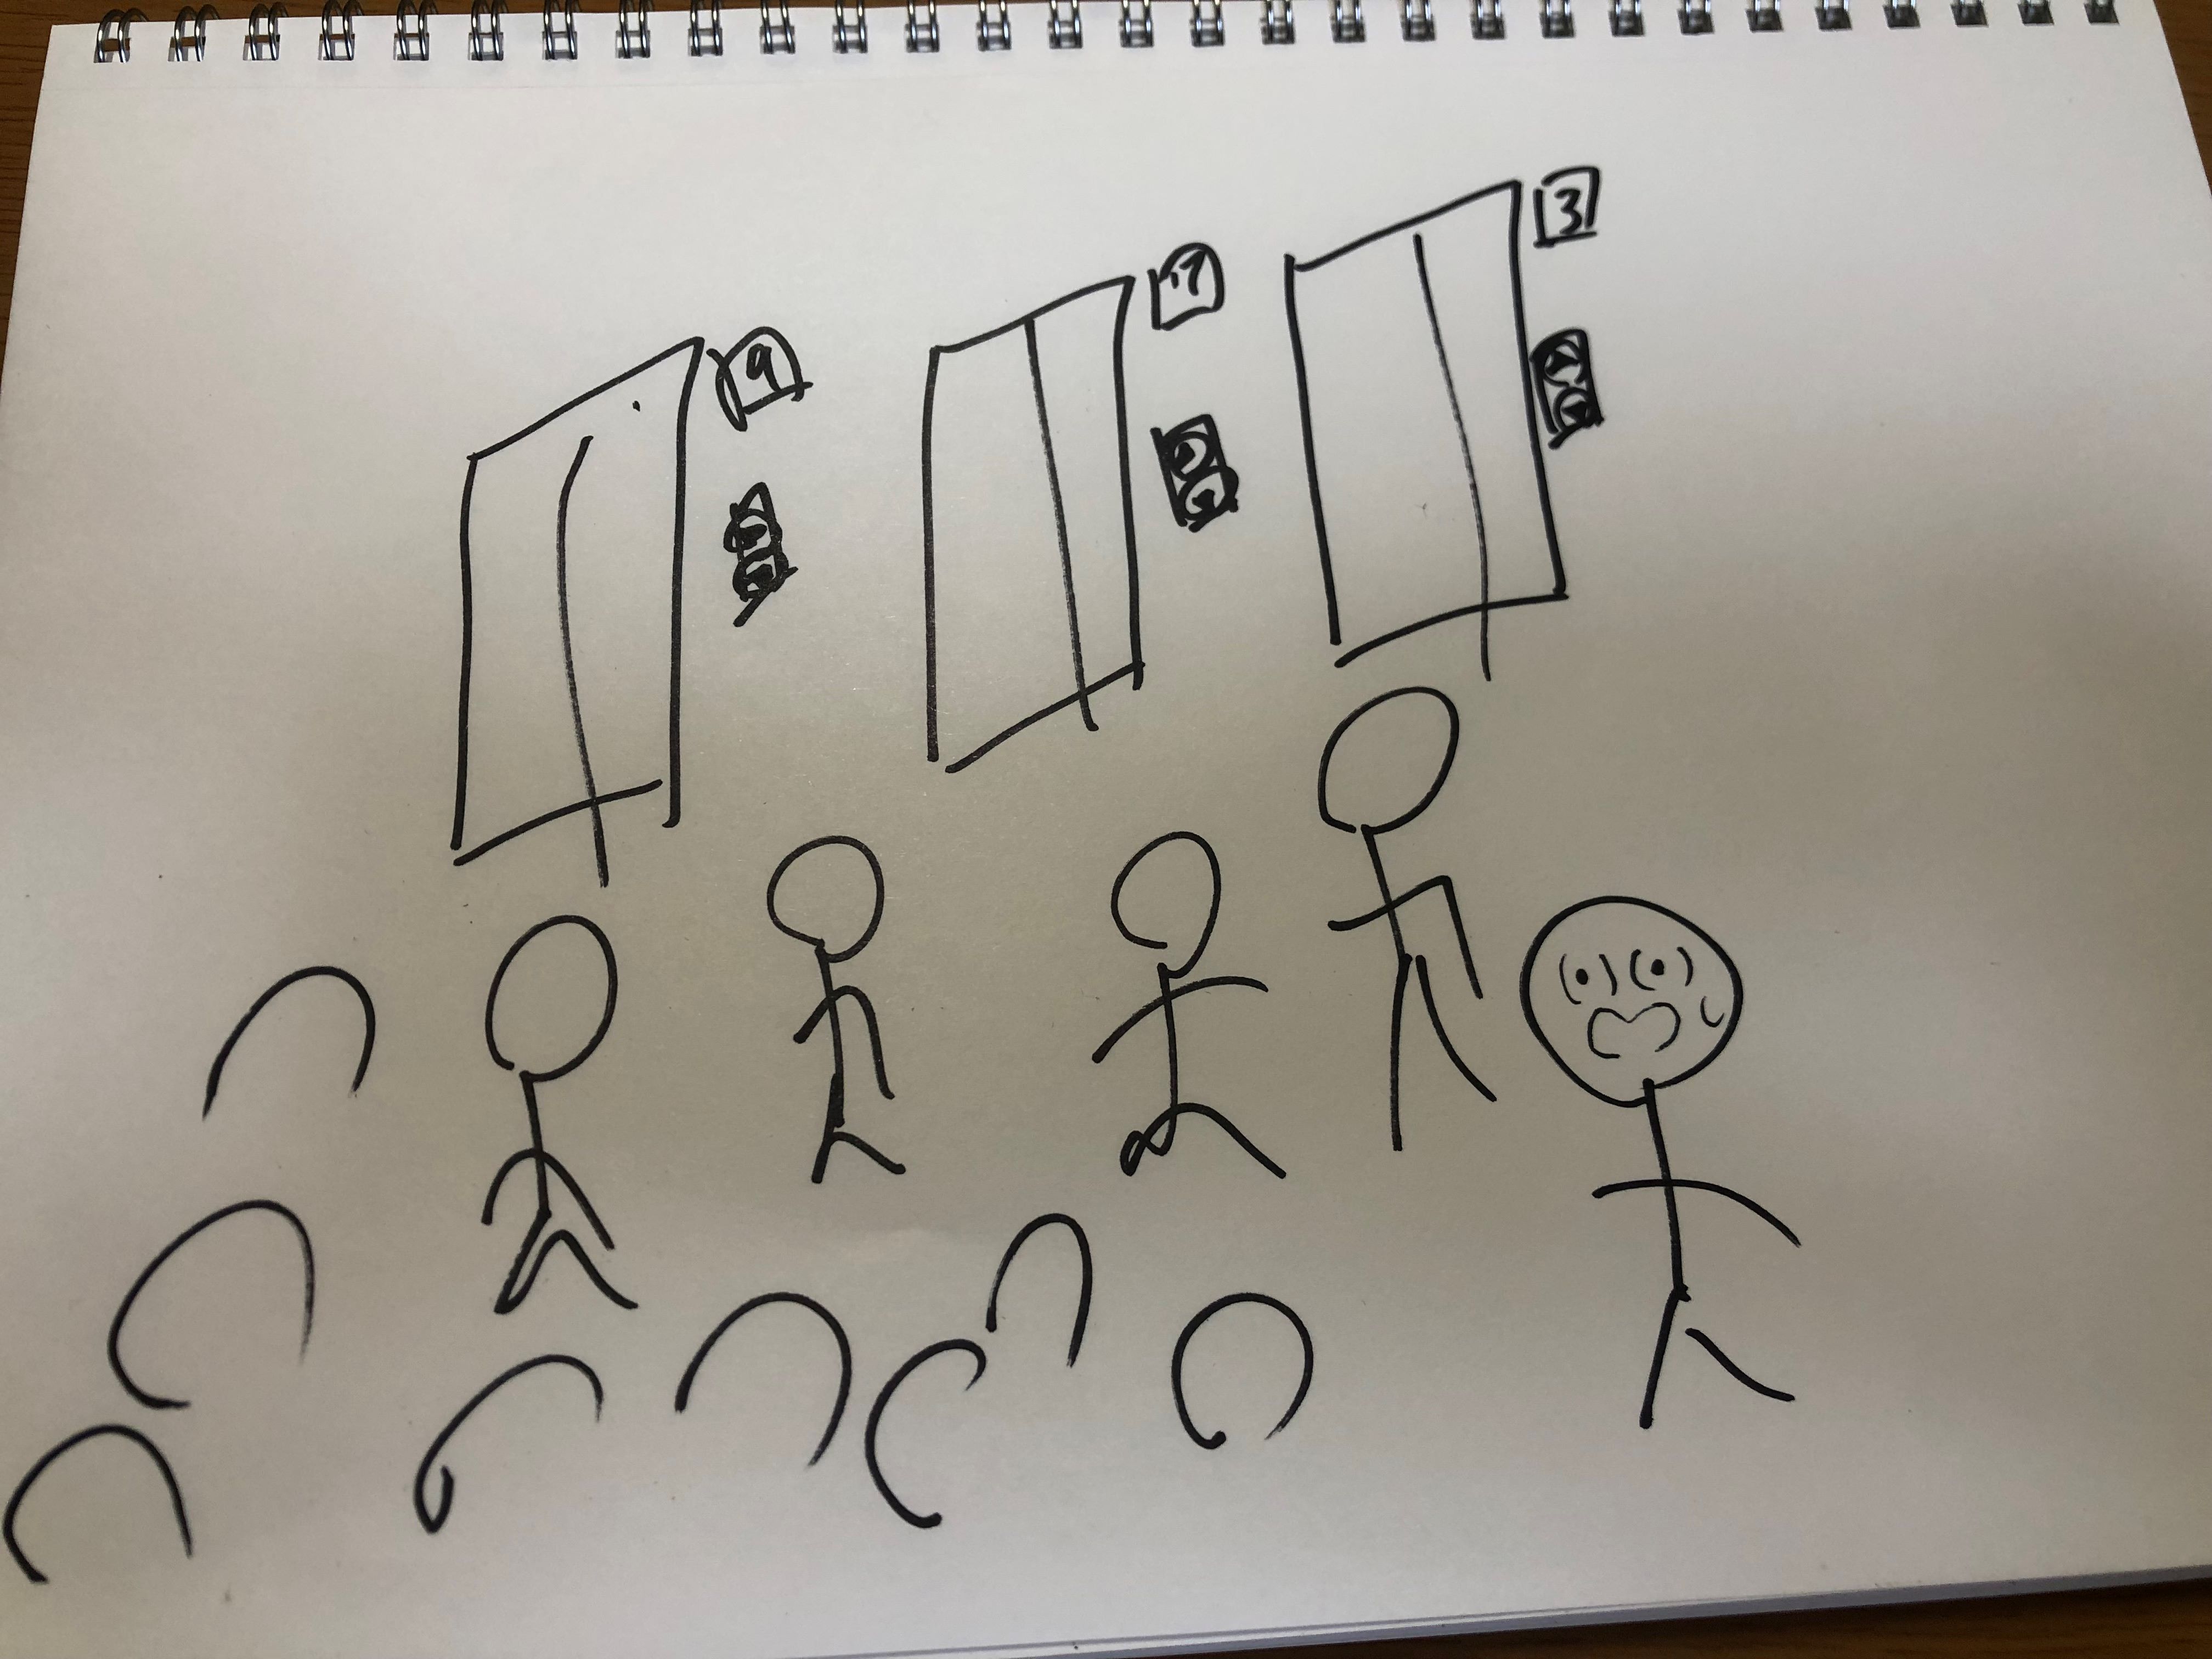 9
17
3